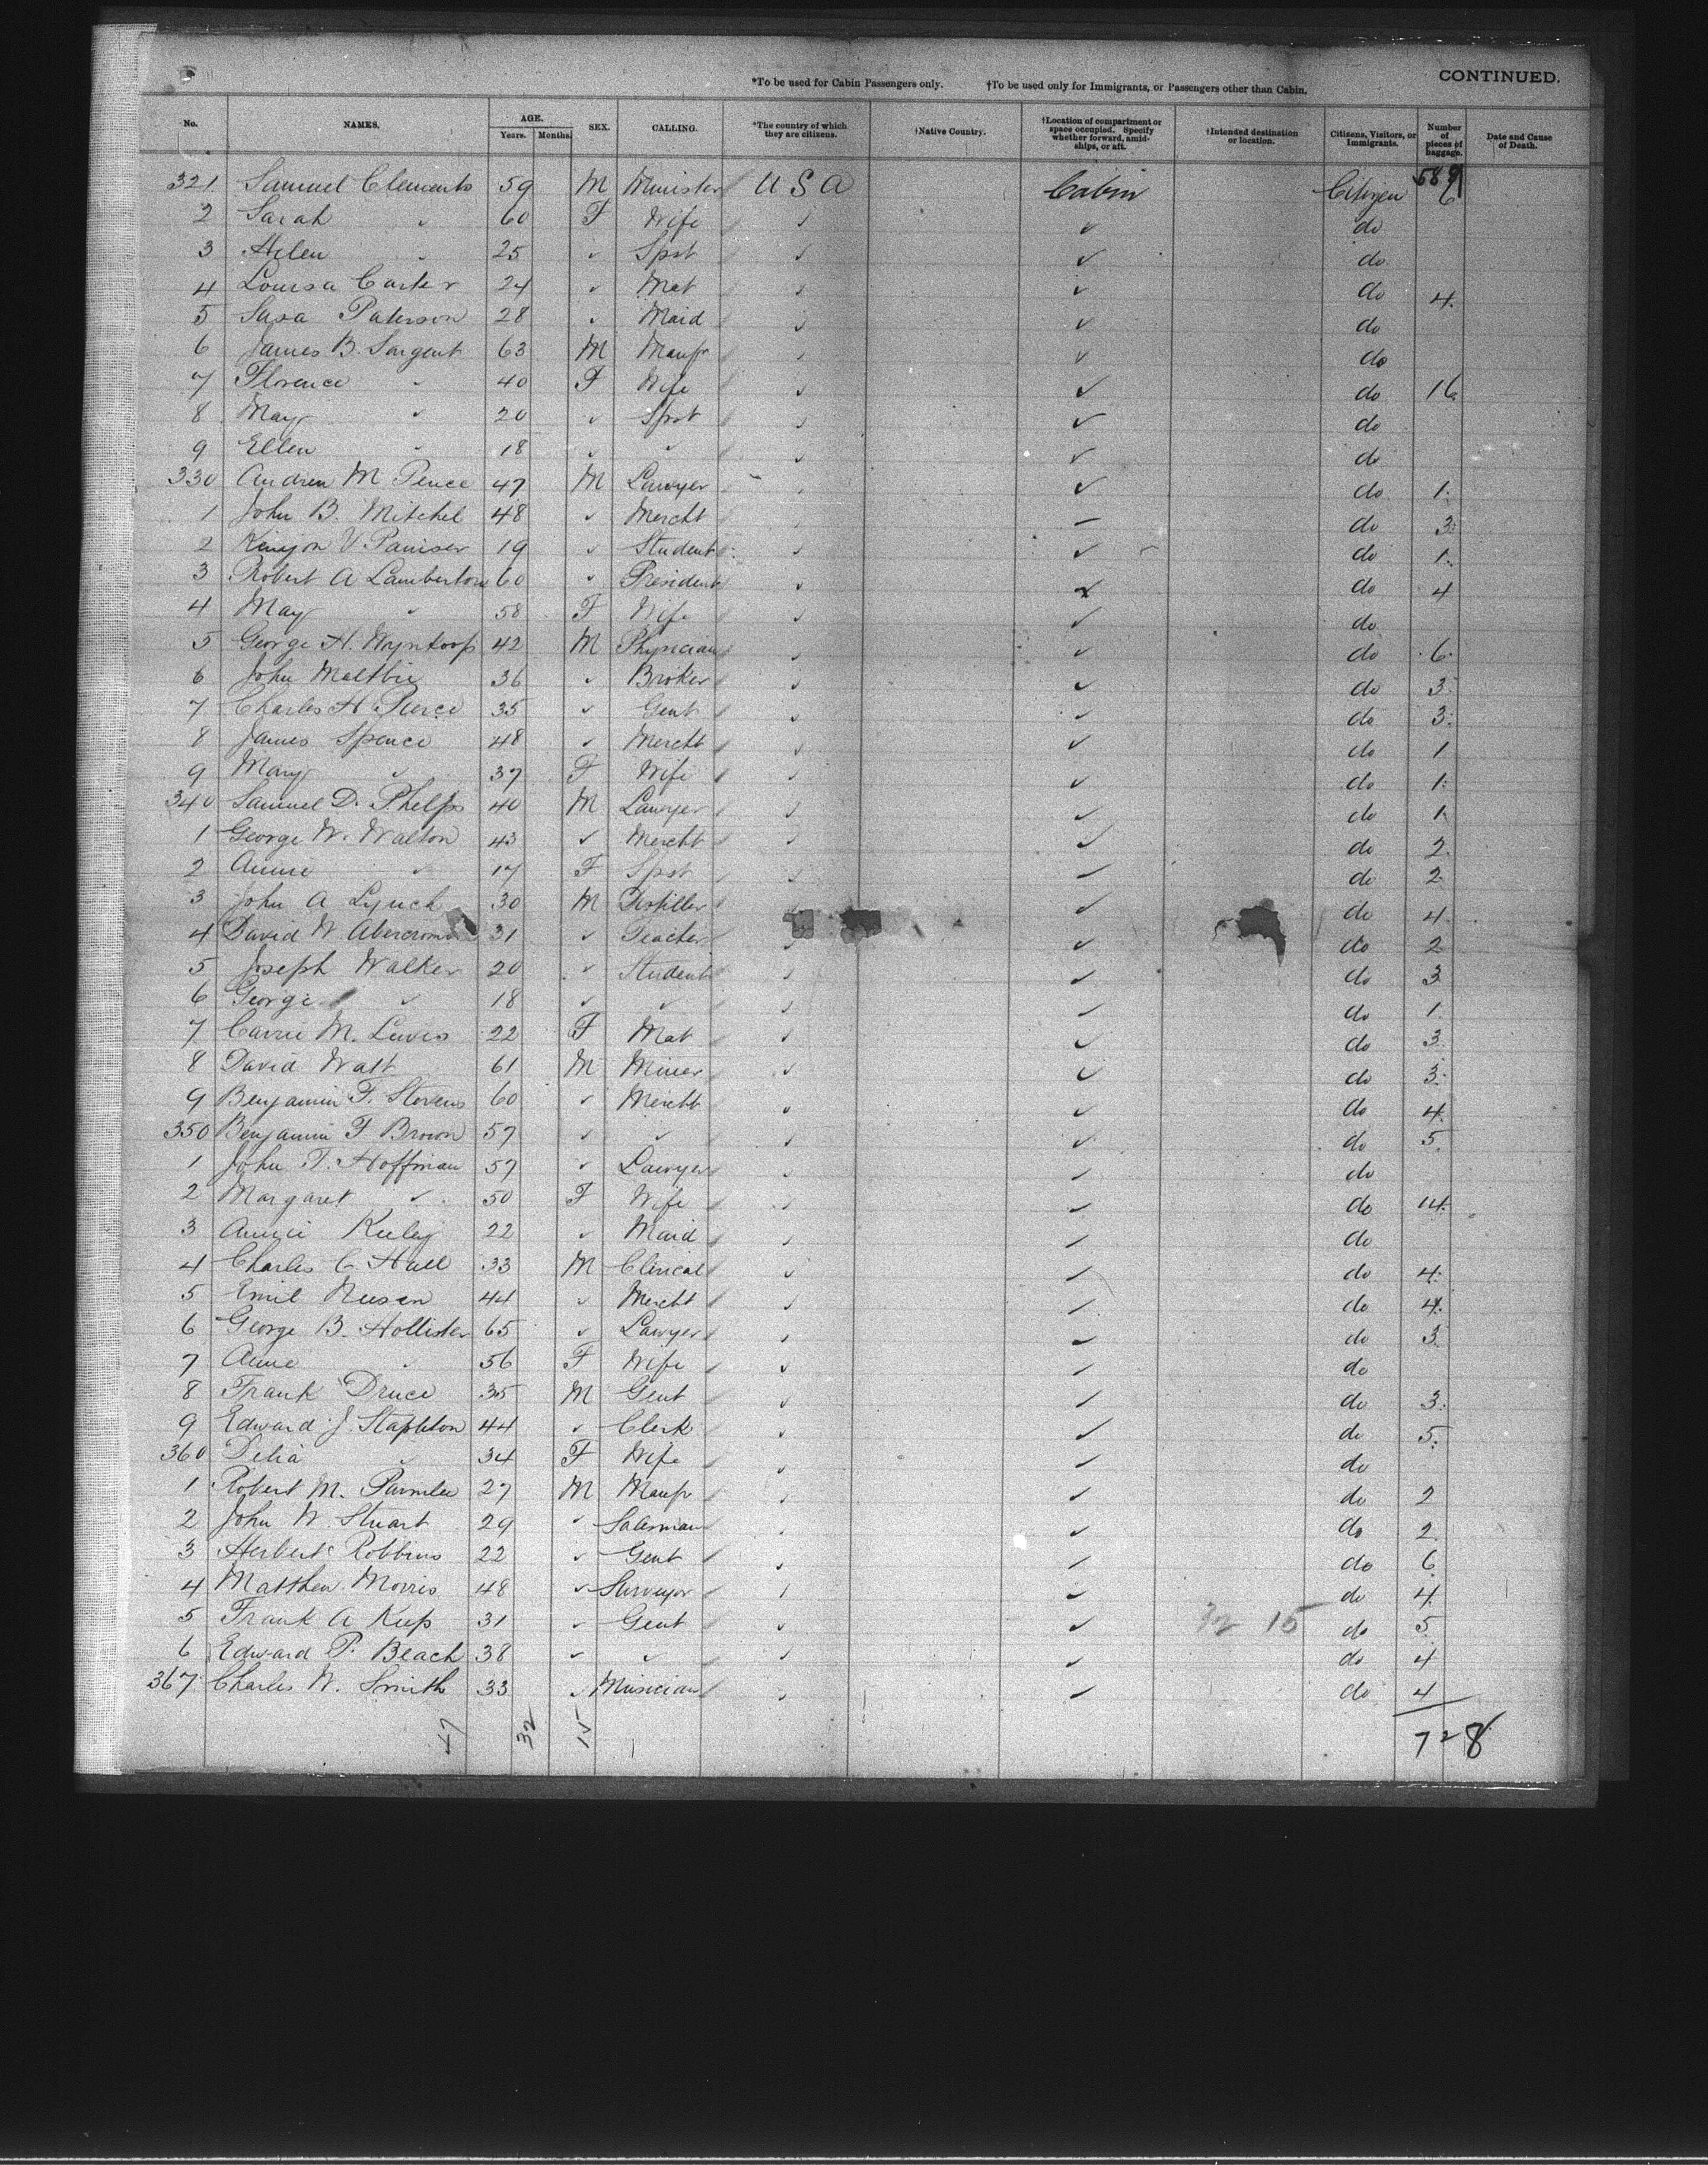 CONTINUED.
*To be used for Cabin Passengers only. †To be used only for Immigrants, or Passengers other than Cabin.
No. NAMES. AGE. Years. Months. SEX. CALLING. *The country of which they are citizens. †Native Country. †Location of compartment or space occupied. Specify whether forward, amidships, or aft. †Intended destination or location. Citizens, Visitors, or Immigrants. Number of pieces of baggage. Date and Cause of Death.
589
321. Samuel Clements 59 M Minister U S A Cabin Citizen 6
2 Sarah " 60 F Wife ✓ ✓ do
3 Helen " 25 ✓ Spst ✓ ✓ do
4 Louisa Carter 24 ✓ Mat ✓ ✓ do 4.
5 Susa Paterson 28 ✓ Maid ✓ ✓ do
6 James B. Sargent 63 M Manfr ✓ ✓ do
7 Florence " 40 F Wife ✓ ✓ do 16
8 May " 20 ✓ Spst ✓ ✓ do
9 Ellen " 18 ✓ ✓ ✓ ✓ do
330 Andrew M Pence 47 M Lawyer ✓ ✓ do 1.
1 John B. Mitchel 48 ✓ Mercht ✓ ✓ do 3.
2 V. 19 ✓ Student ✓ ✓ do 1.
3 Robert A Lamberton 60 ✓ President ✓ ✓ do 4
4 May " 58 F Wife ✓ ✓ do
5 George H. Wynkoop 42 M Physician ✓ ✓ do 6.
6 John Maltbie 36 ✓ Broker ✓ ✓ do 3.
7 Charles H. Pierce 35 ✓ Gent ✓ ✓ do 3.
8 James Spence 48 ✓ Mercht ✓ ✓ do 1
9 Mary " 37 F Wife ✓ ✓ do 1.
340 Samuel D. Phelps 40 M Lawyer ✓ ✓ do 1.
1 George W. Walton 43 ✓ Mercht ✓ ✓ do 2.
2 Annie " 17 F Spst ✓ ✓ do 2
3 John A Lynch 30 M Distiller ✓ do 4
4 David W. 31 ✓ Teacher ✓ ✓ do 2
5 Joseph Walker 20 ✓ Student ✓ ✓ do 3
6 George ✓ 18 ✓ ✓ ✓ ✓ do 1.
7 Carrie M. Lewis 22 F Mat ✓ ✓ do 3.
8 David Watt 61 M Miner ✓ ✓ do 3.
9 Benjamin F. Stevens 60 ✓ Mercht ✓ ✓ do 4.
350 Benjamin F Brown 57 ✓ ✓ ✓ ✓ do 5.
1 John T. Hoffman 57 ✓ Lawyer ✓ ✓ do
2 Margaret ✓ 50 F Wife ✓ ✓ do 14.
3 Annie 22 ✓ Maid ✓ ✓ do
4 Charles C. Hall 33 M Clerical ✓ ✓ do 4.
5 Emil 44 ✓ Mercht ✓ ✓ do 4.
6 George B. Hollister 65 ✓ Lawyer ✓ ✓ do 3.
7 Anne ✓ 56 F Wife ✓ ✓ do
8 Frank Druce 35 M Gent ✓ ✓ do 3.
9 Edward J. Stapleton 44 ✓ Clerk ✓ ✓ do 5.
360 Delia " 34 F Wife ✓ ✓ do
1 Robert M. Parmlee 27 M Manfr ✓ ✓ do 2
2 John W. Stuart 29 ✓ Salesman ✓ ✓ do 2
3 Herbert Robbins 22 ✓ Gent ✓ ✓ do 6.
4 Matthew Morris 48 ✓ Surveyor ✓ ✓ do 4.
5 Frank A Keep 31 ✓ Gent ✓ ✓ 32 15 do 5.
6 Edward P. Beach 38 ✓ ✓ ✓ ✓ do 4
367. Charles W. Smith 33 ✓ Musician ✓ ✓ do 4
47 32 15 728